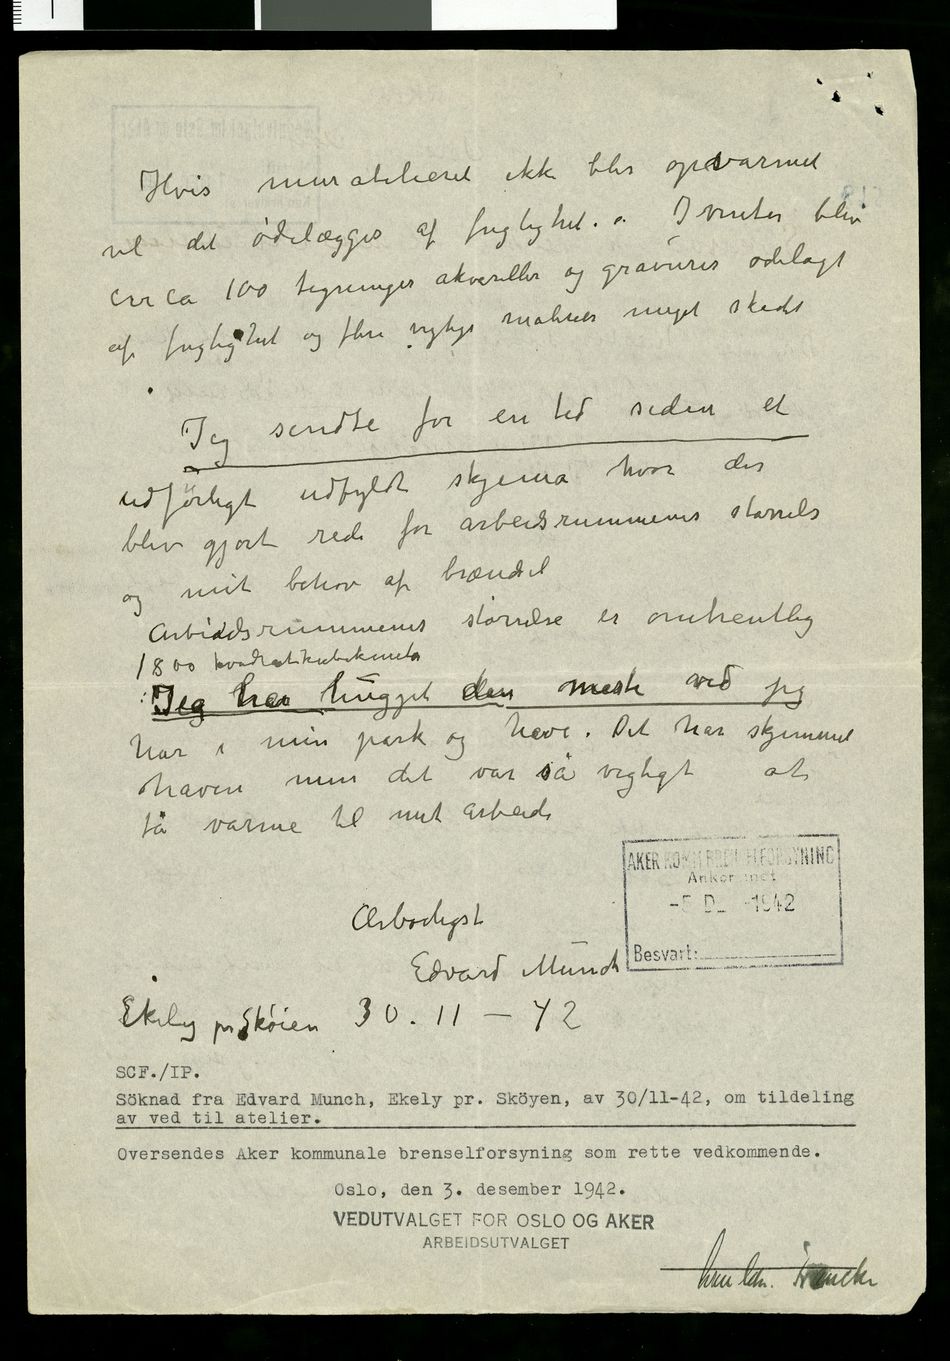 Hvis muratelieret ikke blir opvarmet
vil det ødelægges af fugtighet. I vinter blev
circa 100 tegninger akvareller og gravurer ødelagt
af fugtighet og flere vigtige malerier meget skadet
Jeg sendte for en tid siden et
udførligt udfyldt skjema hvor der
blev gjort rede for arbeidsrummenes størrelse
og mit behov af brændsel
Arbeidsrummenes størrelse er omtrentlig
1800
Jeg har hugget den meste ved jeg
har i min park og have. Det har skjemmet
haven men det var så vigtigt at
få varme til mit arbeide
Ærbødigst
Edvard Munch
Ekely pr Skøien 30. 11 – 42
AKER KOMM BRENSELFORSYNING
Ankertorvet
-5 DES 1942
Besvart:
SCF./IP.
Söknad fra Edvard Munch, Ekely pr. Sköyen, av 30/11-42, om tildeling
av ved til atelier.
Oversendes Aker kommunale brenselforsyning som rette vedkommende.
Oslo, den 3. desember 1942.
VEDUTVALGET FOR OSLO OG AKER
ARBEIDSUTVALGET